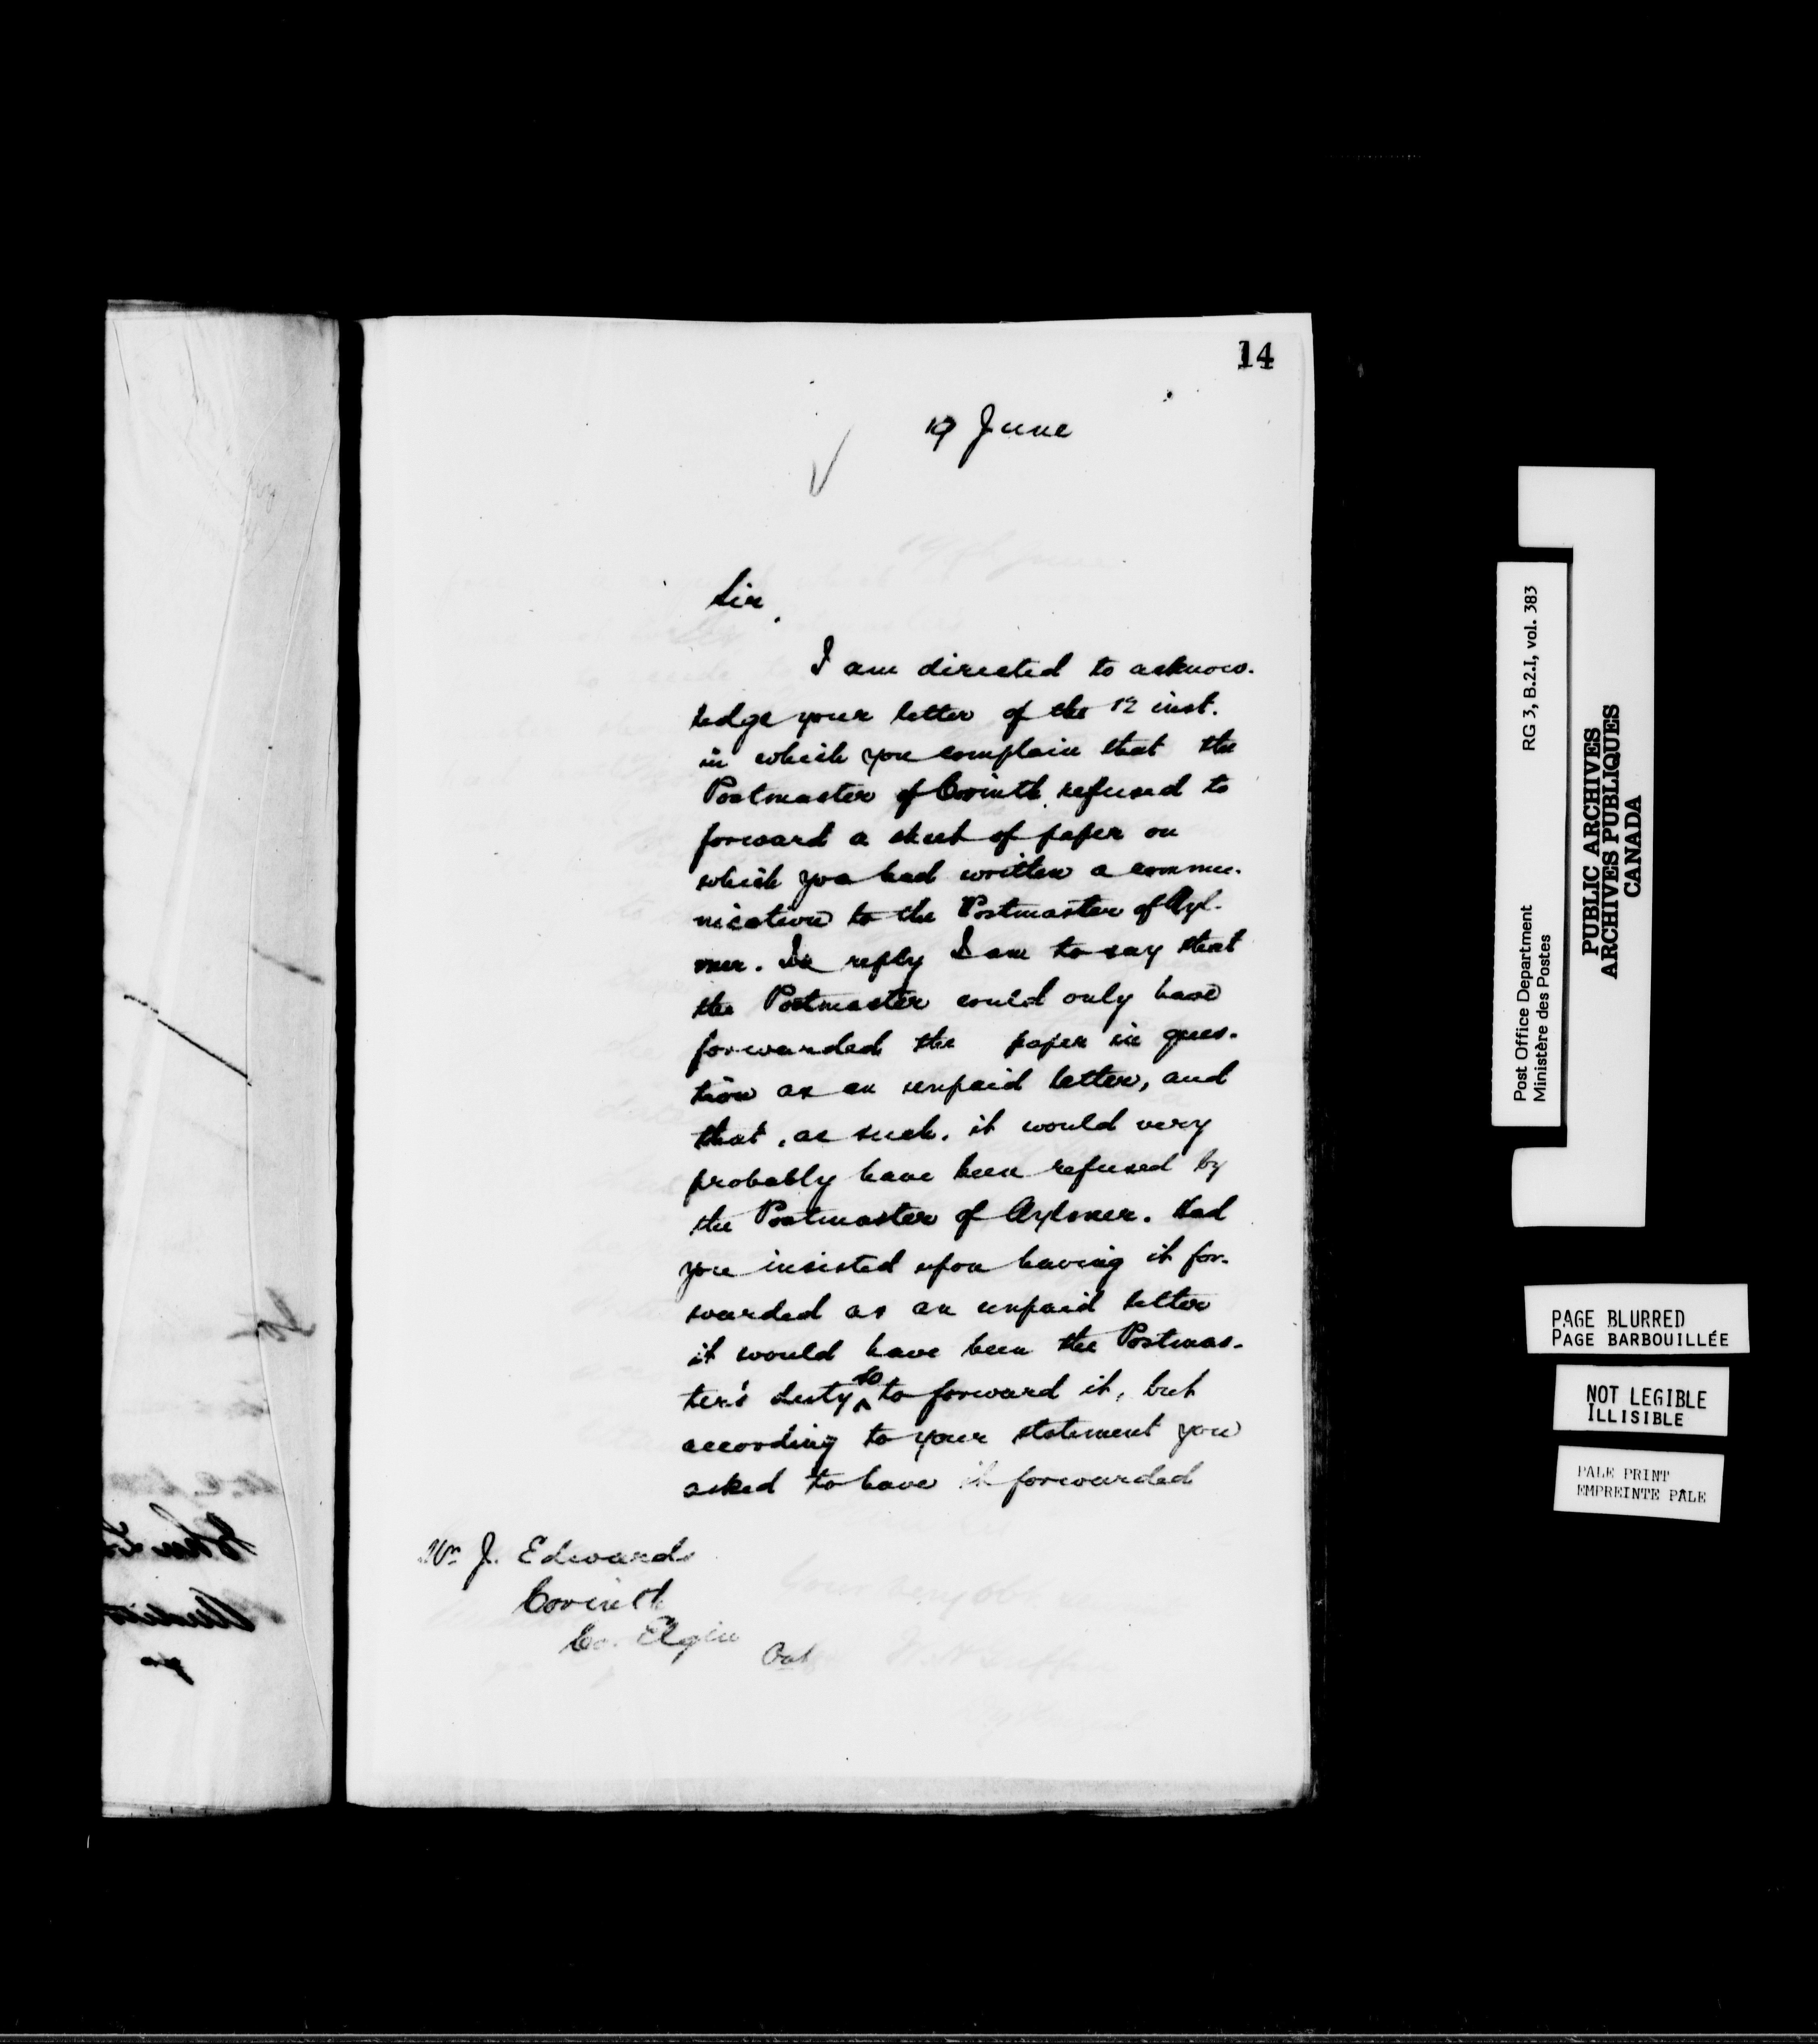 14
19 June
Sir,
I am directed to acknow-
ledge your letter of the 12 inst.
in which you complain that the
Postmaster of Corinth refused to
forward a sheet of paper on
which you had written a commu-
nication to the Postmaster of Ayl-
mer. In reply I am to say that
the Postmaster could only have
forwarded the paper in ques-
tion as an unpaid letter, and
that, as such, it would very
probably have been refused by
the Postmaster of Aylmer. Had
you insisted upon having it for-
warded as an unpaid letter
it would have been the Postmas-
ter's duty so to forward it, but
according to your statement you
asked to have it forwarded
Mr J. Edwards
Corinth
Co. Elgin
Ont
Post Office Department RG 3, B.2.I, vol. 383
Ministère des Postes
PUBLIC ARCHIVES
ARCHIVES PUBLIQUES
CANADA
PAGE BLURRED
PAGE BARBOUILLÉE
NOT LEGIBLE
ILLISIBLE
PALE PRINT
EMPREINTE PÂLE